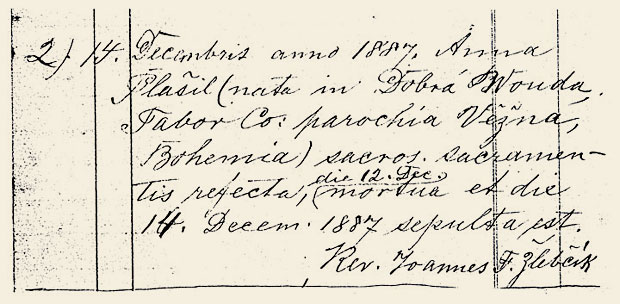 2). 14. Decembris anno 1887. Anna
Plašil (nata in Dobrá Wouda,
Tabor Co: parochia Vežná,
Bohemia) sacros. sacramen-
die 12. Dec.
tis refecta, (mortua et die
14. Decem. 1887 sepulta est.
Rev. Joannes F. Žlebčík